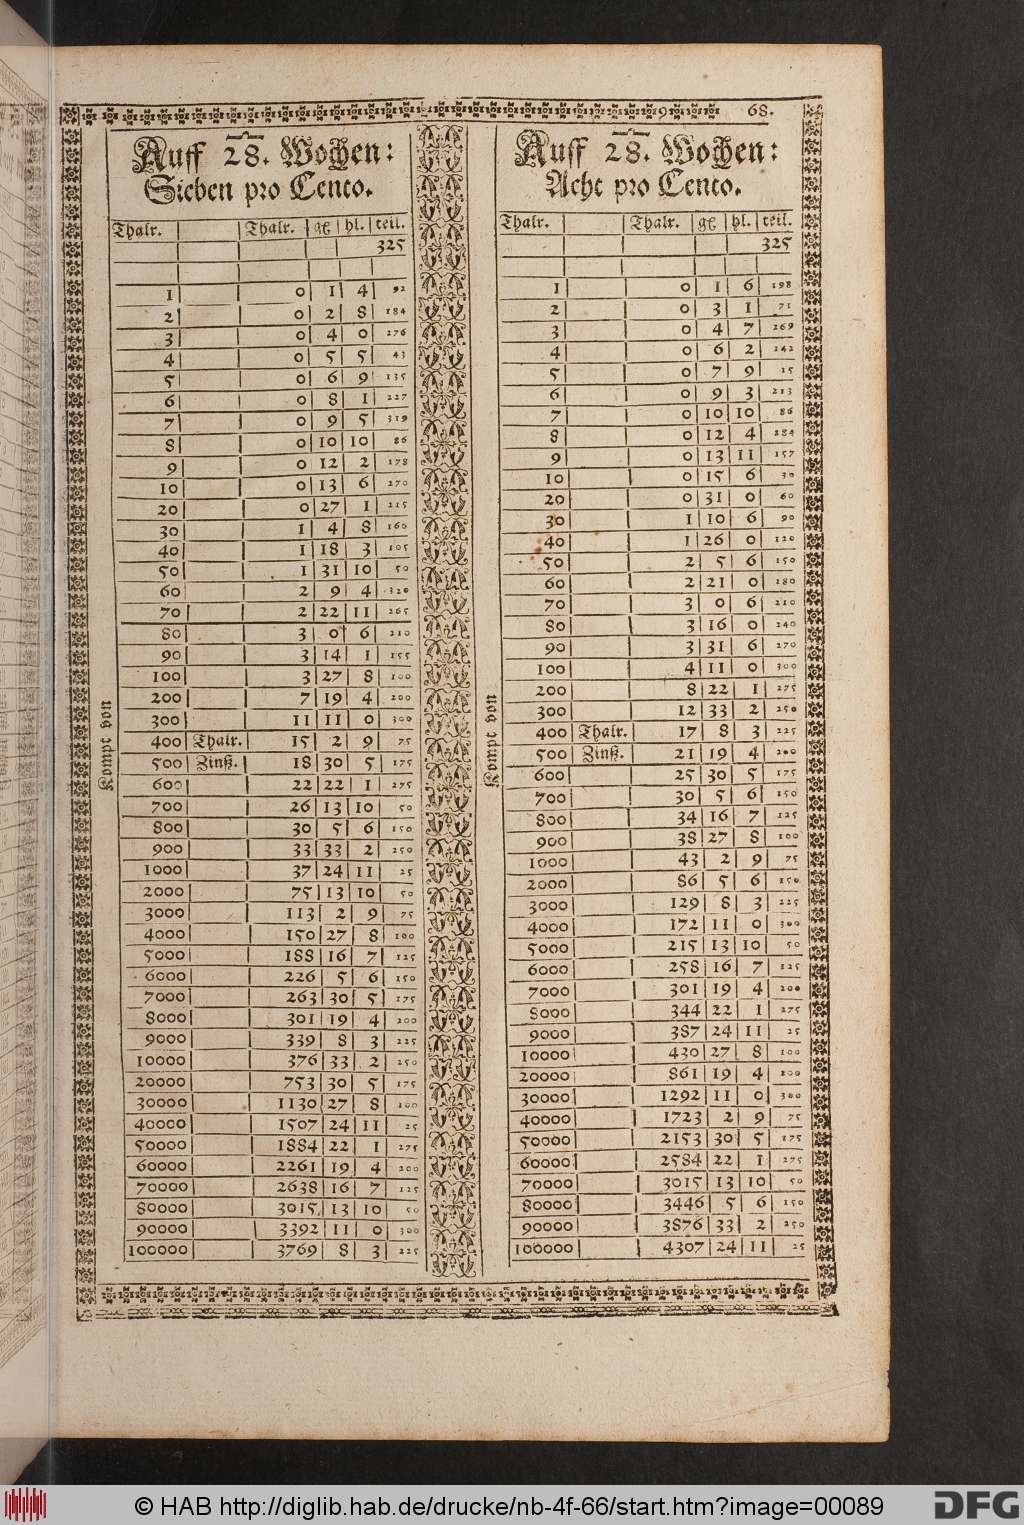 68.
Auff 28. Wochen:
Sieben pro Cento.
Thalr. Thalr. gl hl. teil.
325
1 0 1 4 92
2 0 2 8 184
3 0 4 0 276
4 0 5 5 43
5 0 6 9 135
6 0 8 1 227
7 0 9 5 319
8 0 10 10 86
9 0 12 2 178
10 0 13 6 270
20 0 27 1 215
30 1 4 8 160
40 1 18 3 105
50 1 31 10 50
60 2 9 4 320
70 2 22 11 265
80 3 0 6 210
90 3 14 1 155
100 3 27 8 100
200 7 19 4 200
300 11 11 0 300
400 Thalr. 15 2 9 75
500 Zinß. 18 30 5 175
600 22 22 1 275
700 26 13 10 50
800 30 5 6 150
900 33 33 2 250
1000 37 24 11 25
2000 75 13 10 50
3000 113 2 9 75
4000 150 27 8 100
5000 188 16 7 125
6000 226 5 6 150
7000 263 30 5 175
8000 301 19 4 200
9000 339 8 3 225
10000 376 33 2 250
20000 753 30 5 175
30000 1130 27 8 100
40000 1507 24 11 25
50000 1884 22 1 275
60000 2261 19 4 200
70000 2638 16 7 125
80000 3015 13 10 50
90000 3392 11 0 300
100000 3769 8 3 225
Kompt von
Auff 28. Wochen:
Acht pro Cento.
Thalr. Thalr. gl hl. teil.
325
1 0 1 6 198
2 0 3 1 71
3 0 4 7 269
4 0 6 2 142
5 0 7 9 15
6 0 9 3 213
7 0 10 10 86
8 0 12 4 284
9 0 13 11 157
10 0 15 6 30
20 0 31 0 60
30 1 10 6 90
40 1 26 0 120
50 2 5 6 150
60 2 21 0 180
70 3 0 6 210
80 3 16 0 240
90 3 31 6 270
100 4 11 0 300
200 8 22 1 275
300 12 33 2 250
400 Thalr. 17 8 3 225
500 Zinß. 21 19 4 200
600 25 30 5 175
700 30 5 6 150
800 34 16 7 125
900 38 27 8 100
1000 43 2 9 75
2000 86 5 6 150
3000 129 8 3 225
4000 172 11 0 300
5000 215 13 10 50
6000 258 16 7 125
7000 301 19 4 200
8000 344 22 1 275
9000 387 24 11 25
10000 430 27 8 100
20000 861 19 4 200
30000 1292 11 0 300
40000 1723 2 9 75
50000 2153 30 5 175
60000 2584 22 1 275
70000 3015 13 10 50
80000 3446 5 6 150
90000 3876 33 2 250
100000 4307 24 11 25
Kompt von
© HAB http://diglib.hab.de/drucke/nb-4f-66/start.htm?image=00089
DFG